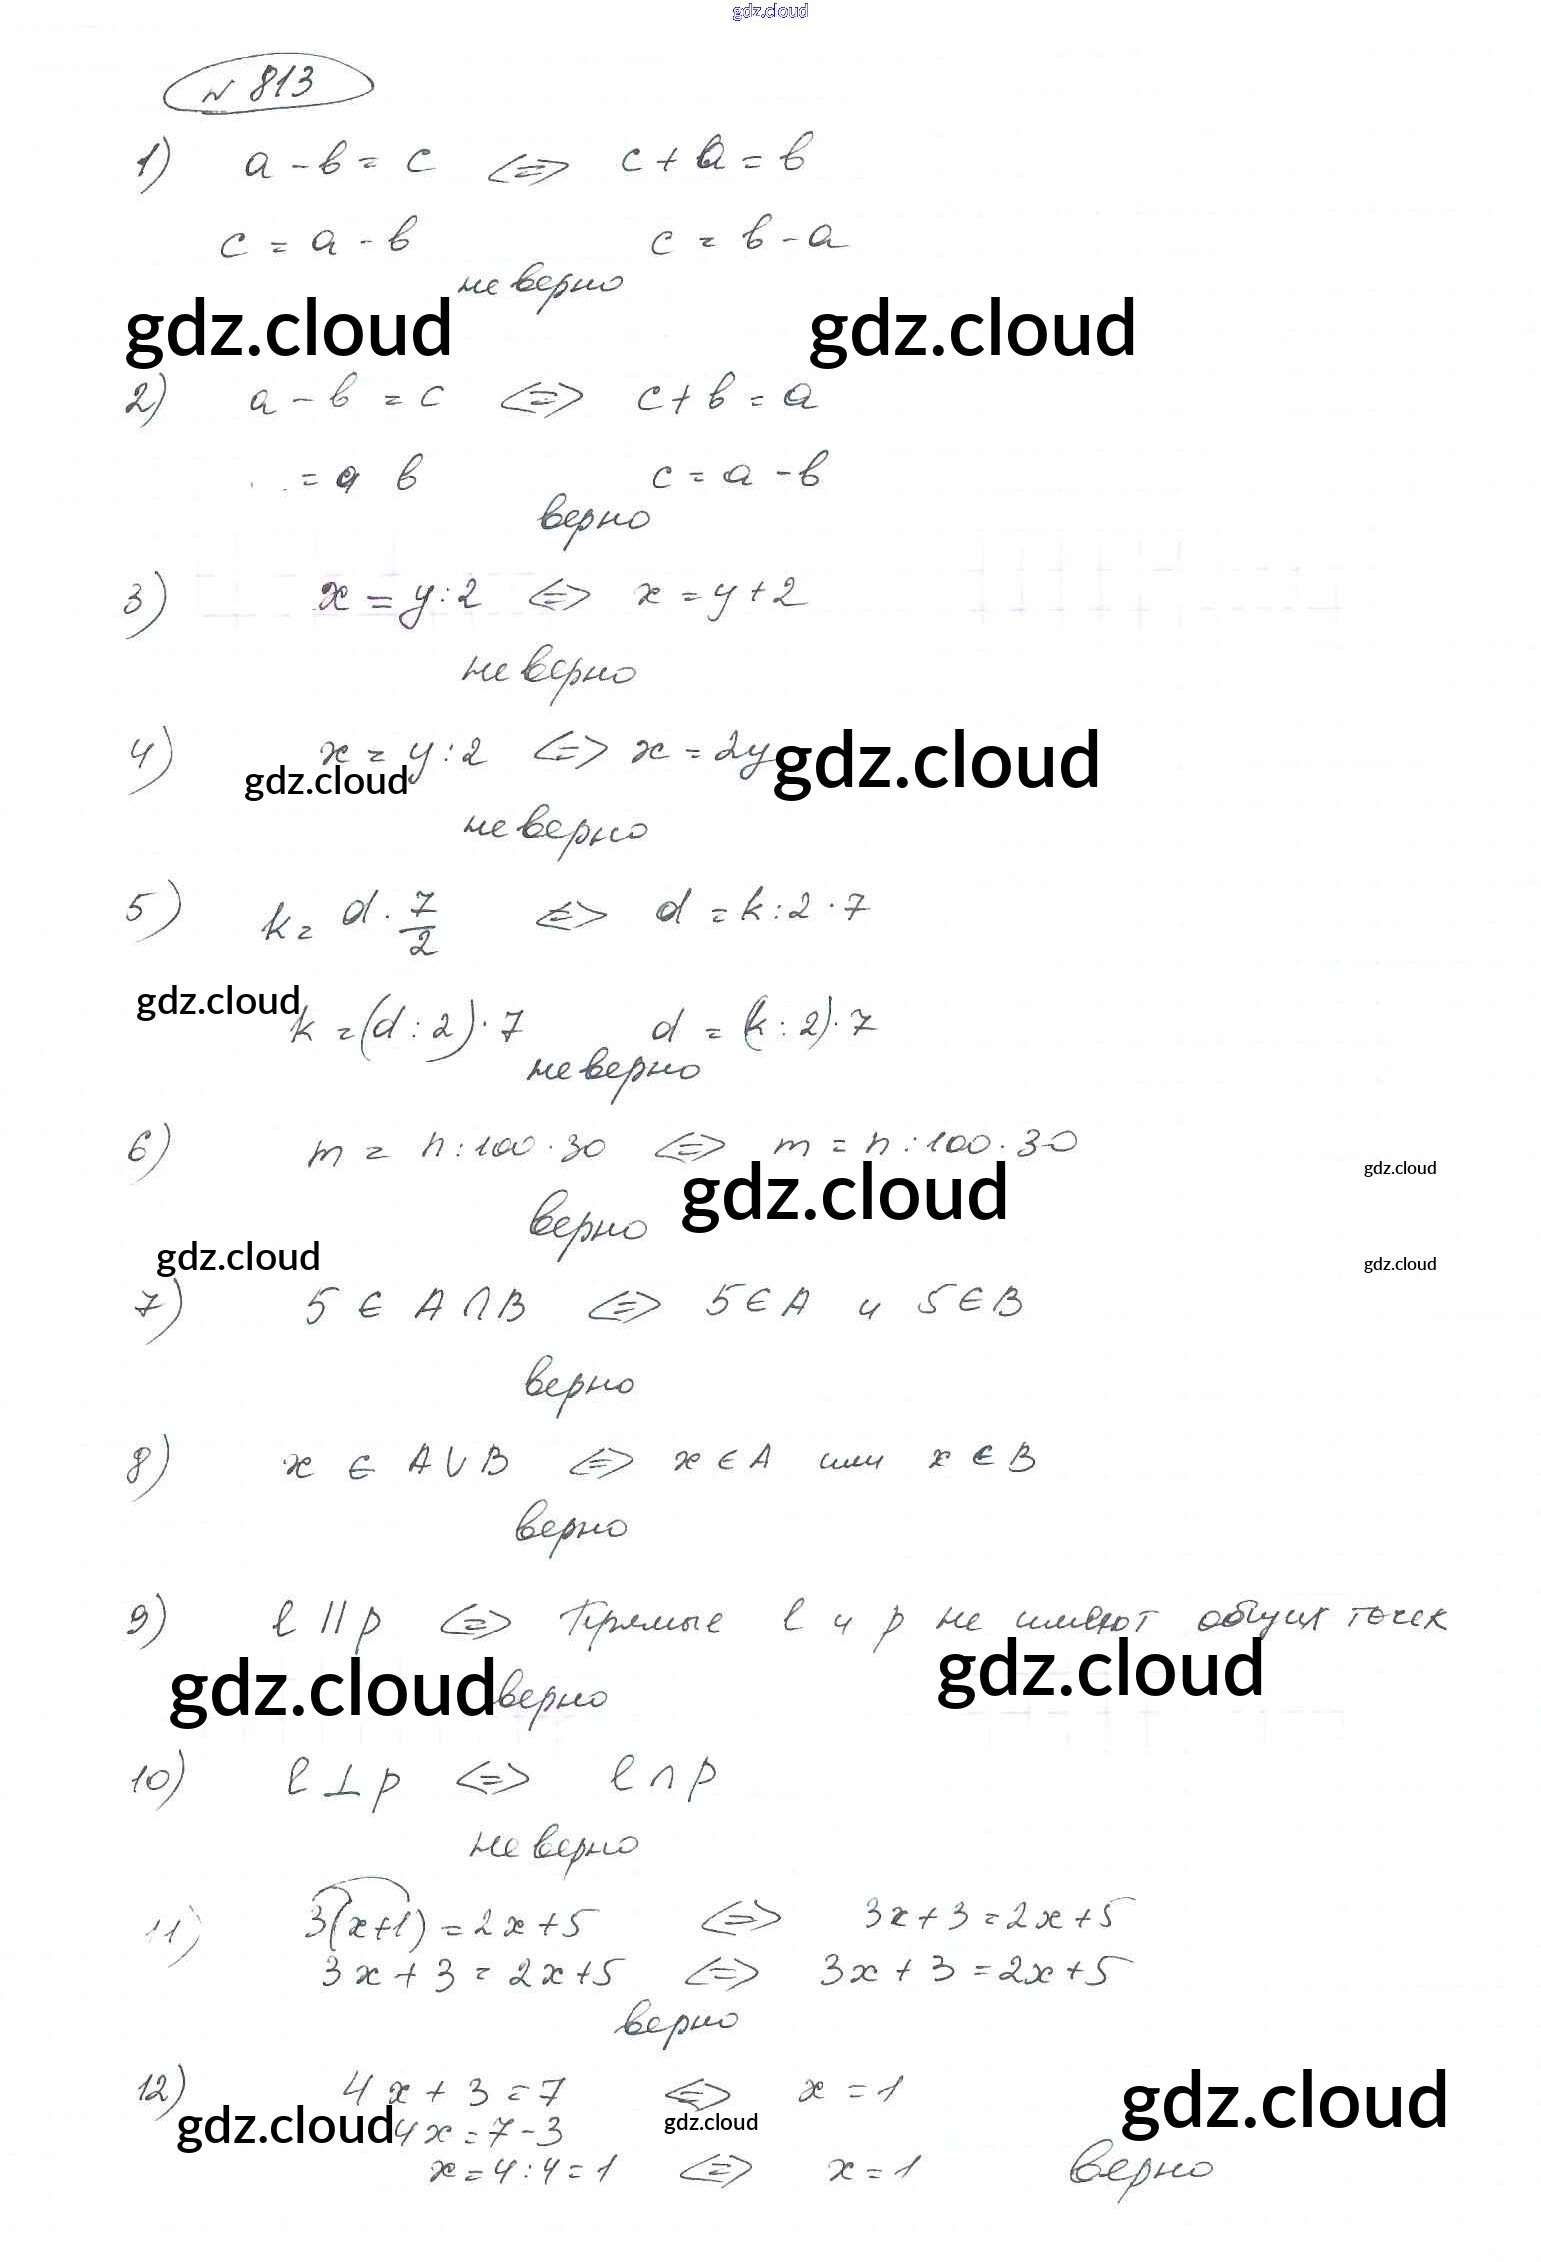 gdz.cloud
N 813
1) a - b = c <=> c + a = b
c = a - b c = b - a
неверно
gdz.cloud gdz.cloud
2) a - b = c <=> c + b = a
= a b c = a - b
верно
3) x = y : 2 <=> x = y + 2
неверно
4) x = y : 2 <=> x = 2y
gdz.cloud gdz.cloud
неверно
5) k = d · 7/2 <=> d = k : 2 · 7
gdz.cloud
k = (d : 2) · 7 d = (k : 2) · 7
неверно
6) m = n : 100 · 30 <=> m = n : 100 · 30
gdz.cloud gdz.cloud
верно
gdz.cloud gdz.cloud
7) 5 ∈ A ∩ B <=> 5 ∈ A и 5 ∈ B
верно
8) x ∈ A ∪ B <=> x ∈ A или x ∈ B
верно
9) l || p <=> Прямые l и p не имеют общих точек
gdz.cloud верно gdz.cloud
10) l ⊥ p <=> l ∩ p
неверно
11) 3(x+1) = 2x + 5 <=> 3x + 3 = 2x + 5
3x + 3 = 2x + 5 <=> 3x + 3 = 2x + 5
верно
12) 4x + 3 = 7 <=> x = 1
gdz.cloud 4x = 7 - 3 gdz.cloud gdz.cloud
x = 4 : 4 = 1 <=> x = 1 верно